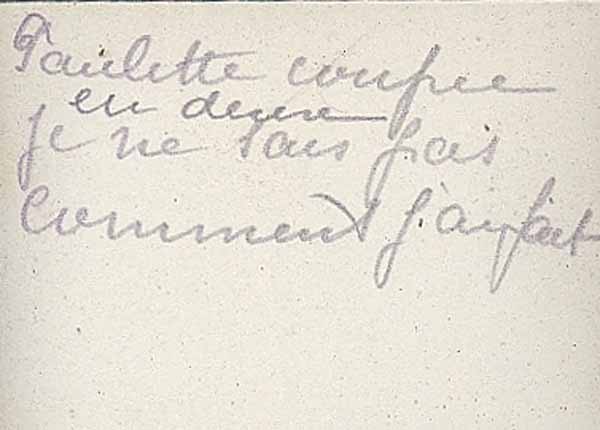 Paulette coupee
en deux
je ne sais pas
comment j'ai fait